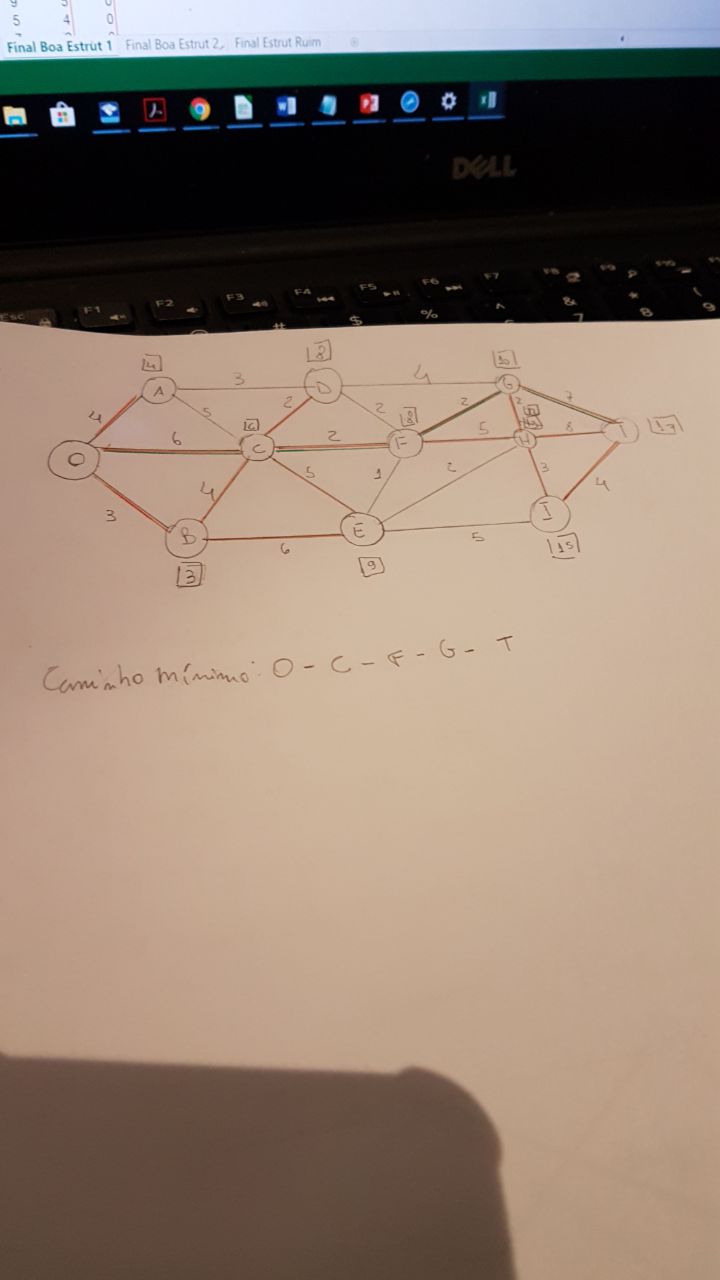 5 4 0
Final Boa Estrut 1 Final Boa Estrut 2 Final Estrut Ruim
DELL
Esc F1 F2 F3 F4 F5 F6 F7 F8 F9 F10
# $ % ^ & * (
7 8 9
4 8 10
A 3 D 4 G
4 5 2 2 2 2 7
6 8
O 6 C 2 F 5 H 8 T 17
3 4 5 1 2 3 4
B 6 E 5 I
3 9 15
Caminho mínimo: O - C - F - G - T